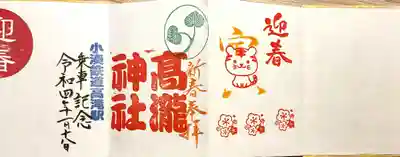 迎春
新春奉拝
高瀧
神社
小湊鉄道高滝駅
乗車記念
令和四年一月七日
迎春